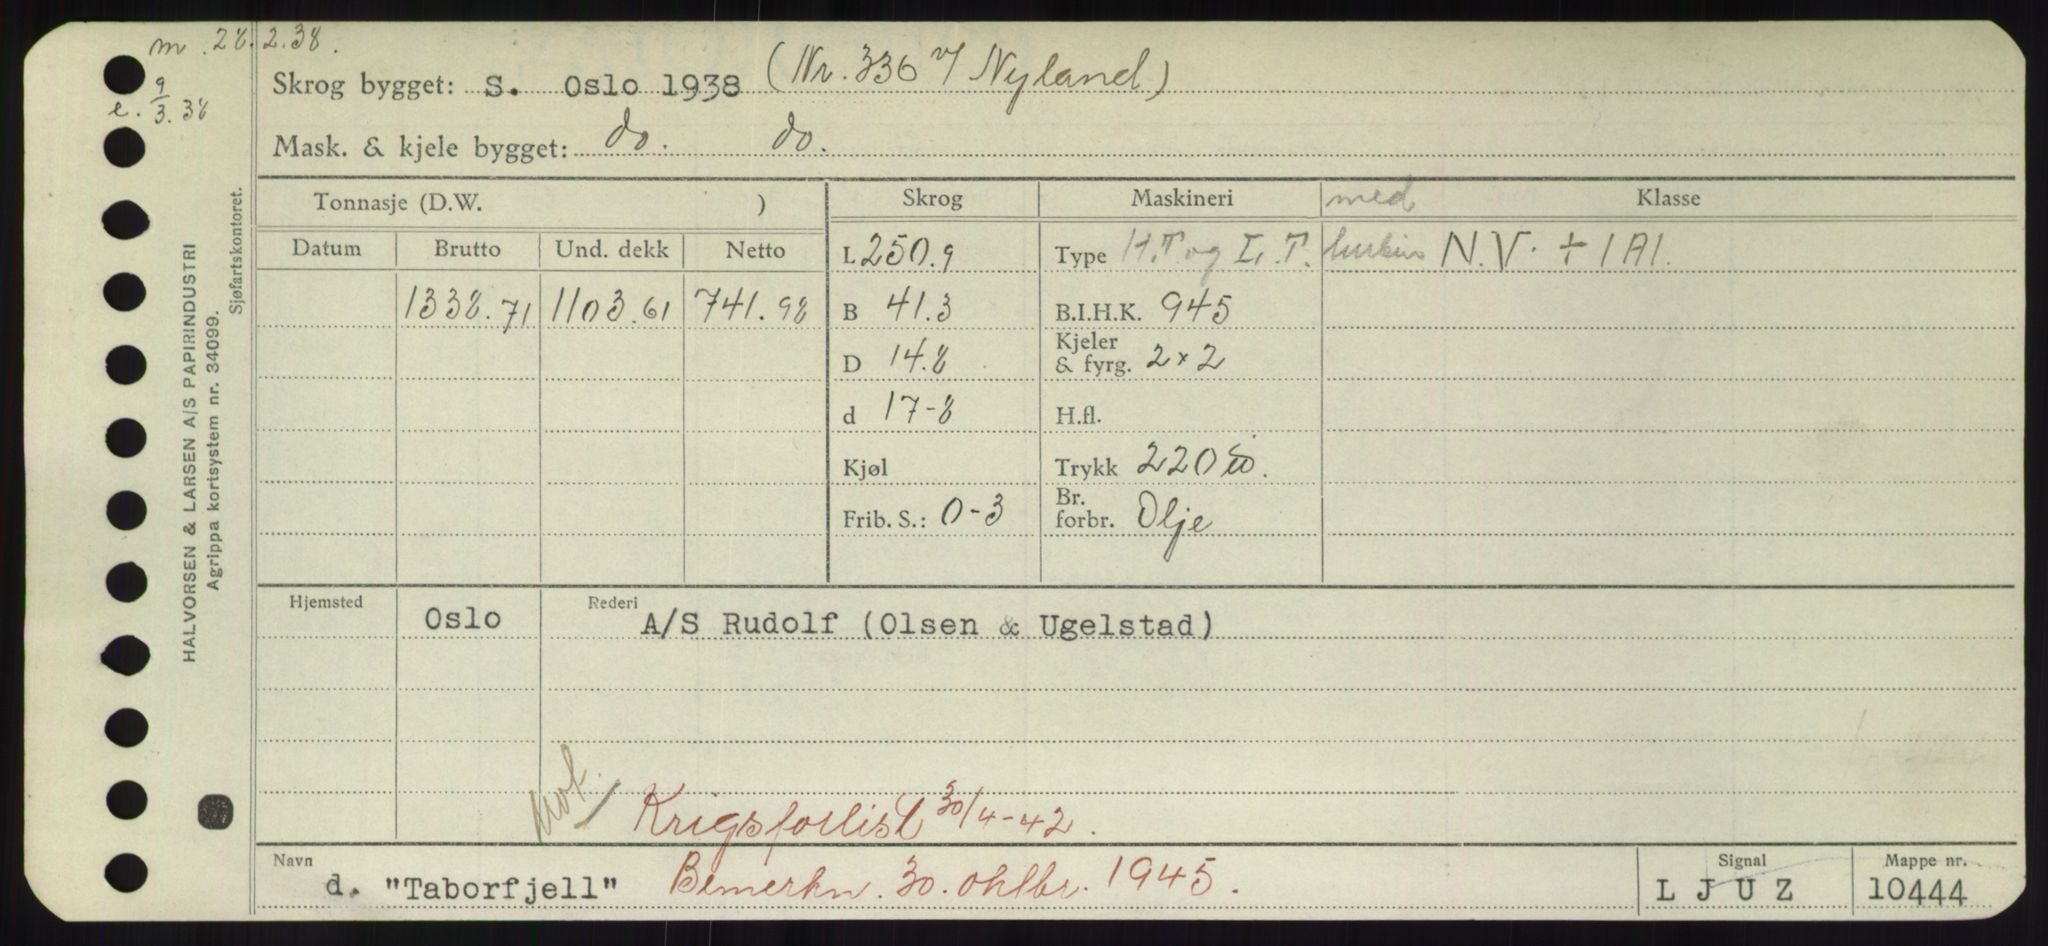 m. 28.2.38.
e. 9/3.38
Skrog bygget: S. Oslo 1938 (Nr. 336 v/ Nyland)
Mask. & kjele bygget: do. do.
Tonnasje (D.W. ) Skrog Maskineri med Klasse
Datum Brutto Und. dekk Netto L 250.9 Type H.T. og L.T. turbin N.V. + 1A1.
1338.71 1103.61 741.98 B 41.3 B.I.H.K. 945
D 14.8 Kjeler & fyrg. 2 x 2
d 17-8 H.fl.
Kjøl Trykk 220 lb.
Frib. S.: 0-3 Br. forbr. Olje
Hjemsted Oslo Rederi A/S Rudolf (Olsen & Ugelstad)
Krigsforlist 30/4-42.
Navn d. "Taborfjell" Bemerkn. 30. oktbr. 1945.
Signal L J U Z
Mappe nr. 10444
HALVORSEN & LARSEN A/S PAPIRINDUSTRI
Agrippa kortsystem nr. 34099.
Sjøfartskontoret.